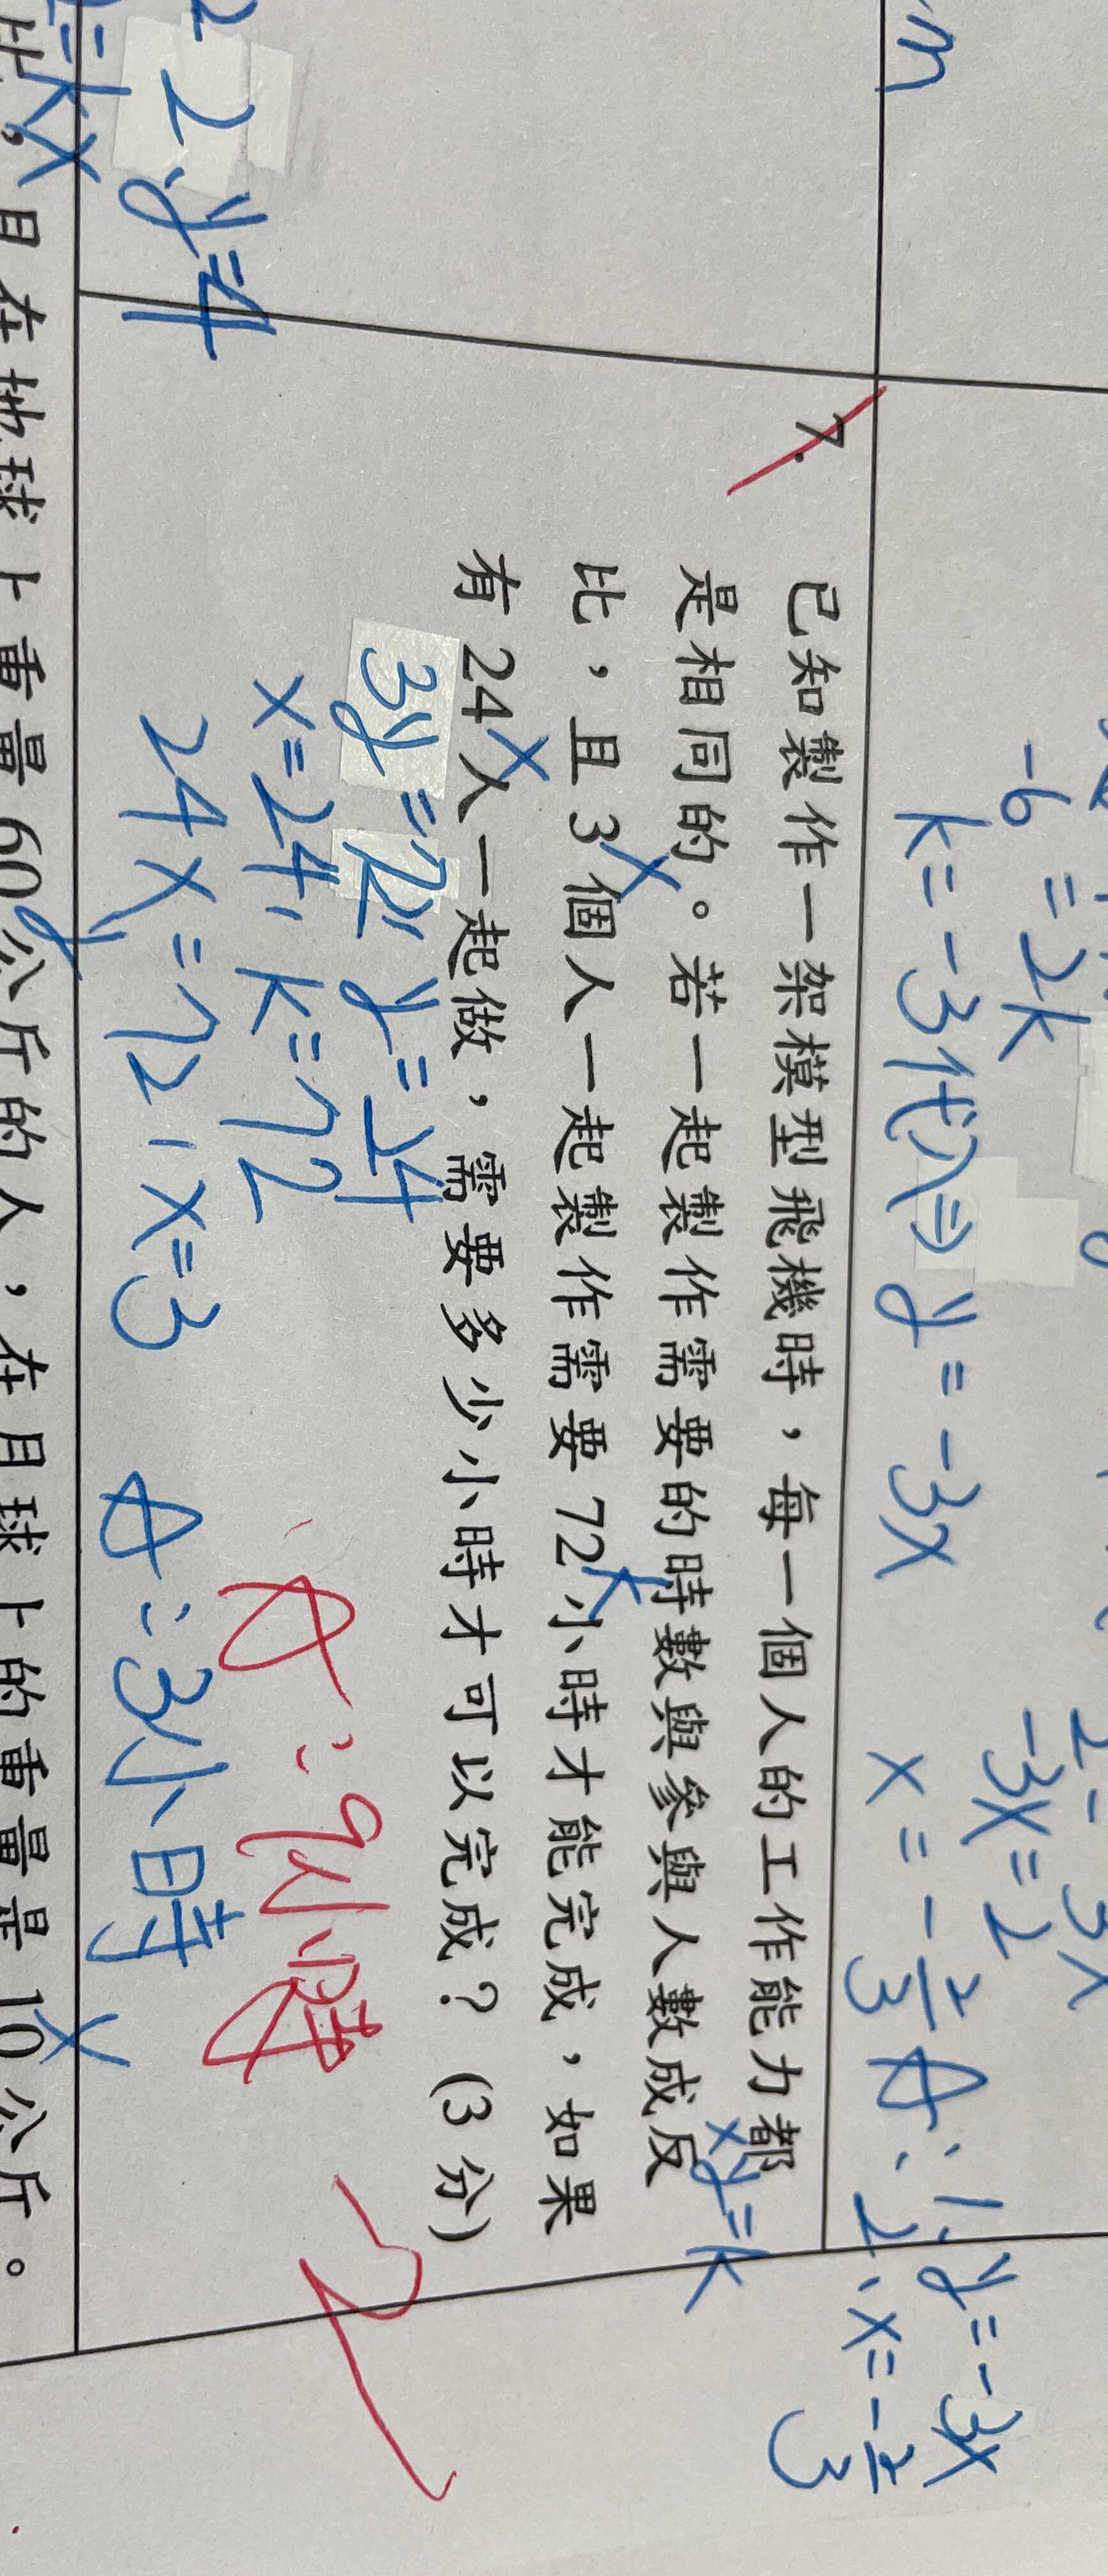 -6 = 2k
k = -3代入⇒ y = -3x
-3x = 2
x = -2/3
A: 1. y = -3x
2. x = -2/3
7. 已知製作一架模型飛機時，每一個人的工作能力都
是相同的。若一起製作需要的時數與參與人數成反
xy = k
比，且 3 個人一起製作需要 72 小時才能完成，如果
x
k
有 24 人一起做，需要多少小時才可以完成？ (3 分)
x
3y = 72, y = 24
x = 24, k = 72
24x = 72, x = 3
A: 3小時
A: 9小時
-2
2. y = 4
= kx
比，且在地球上重量 60 公斤的人，在月球上的重量是 10 公斤。
y
x